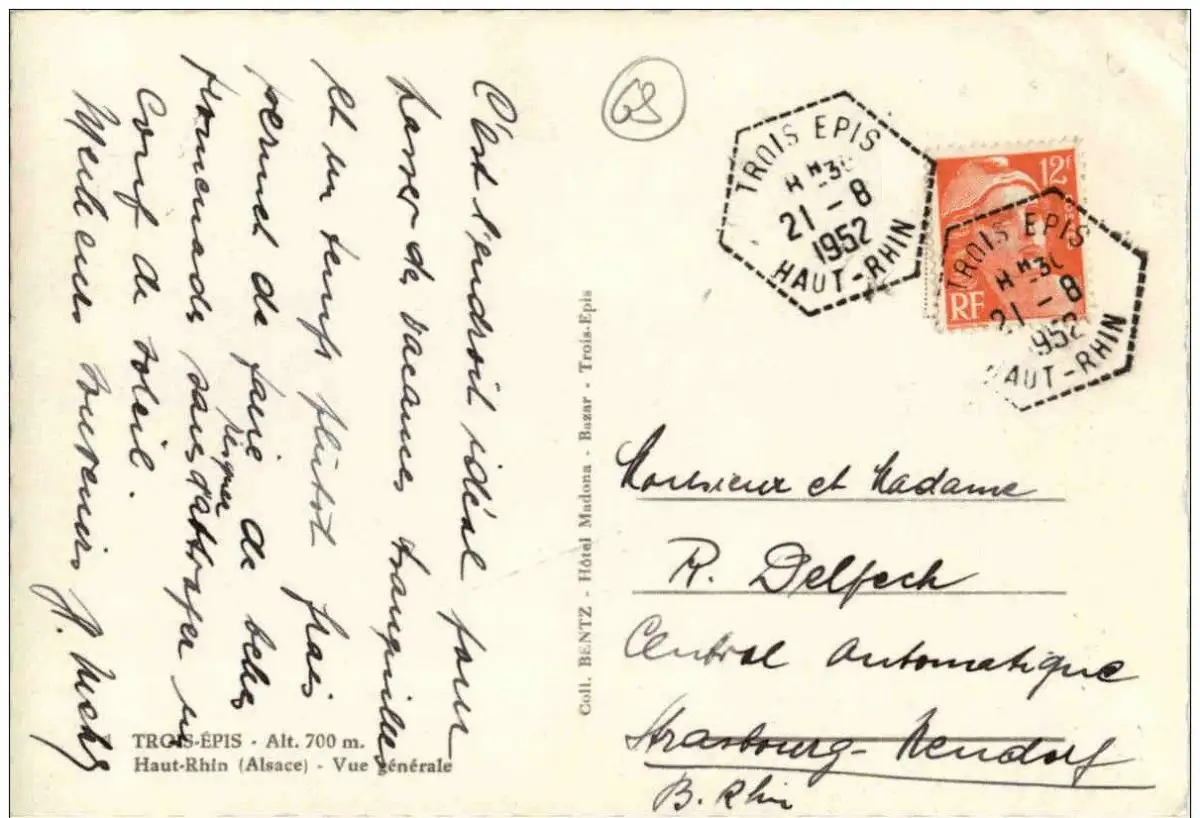 C'est l'endroit idéal pour
passer des vacances tranquilles
et un temps plutôt frais
permet de faire de belles
promenades sans risquer d'attraper un
coup de soleil.
Meilleurs souvenirs
68
TROIS EPIS
21 - 8
1952
HAUT-RHIN
12F
RF
TROIS EPIS
21 - 8
1952
HAUT-RHIN
Coll. BENTZ - Hôtel Madona - Bazar - Trois-Epis
Monsieur et Madame
R. Delfech
Central Automatique
Strasbourg-Neudorf
B. Rhin
TROIS-ÉPIS - Alt. 700 m.
Haut-Rhin (Alsace) - Vue générale